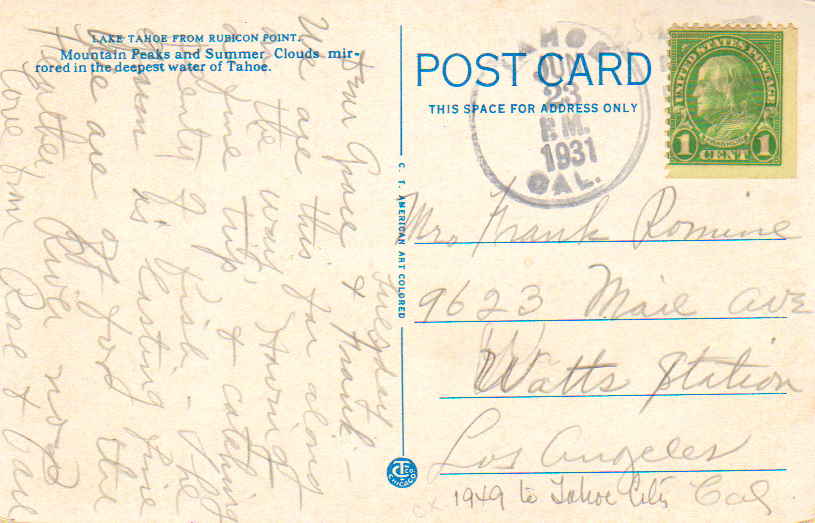 LAKE TAHOE FROM RUBICON POINT.
Mountain Peaks and Summer Clouds mir-
rored in the deepest water of Tahoe.
Tuesday
Dear Grace & Frank –
We are this far along
on the way, & having
a fine trip, & catching
plenty of fish – The
is lasting fine
We are at ford the
Feather River now
Love from Rose & Carl
C. T. AMERICAN ART COLORED
CT
CO.
CHICAGO
POST CARD
THIS SPACE FOR ADDRESS ONLY
TAHOE
JUN
23
P.M.
1931
CAL.
UNITED STATES POSTAGE
FRANKLIN
1 CENT 1
Mrs Frank Romine
9623 Maie Ave
Watts Station
Los Angeles
Cal
CX 1949 to Tahoe City